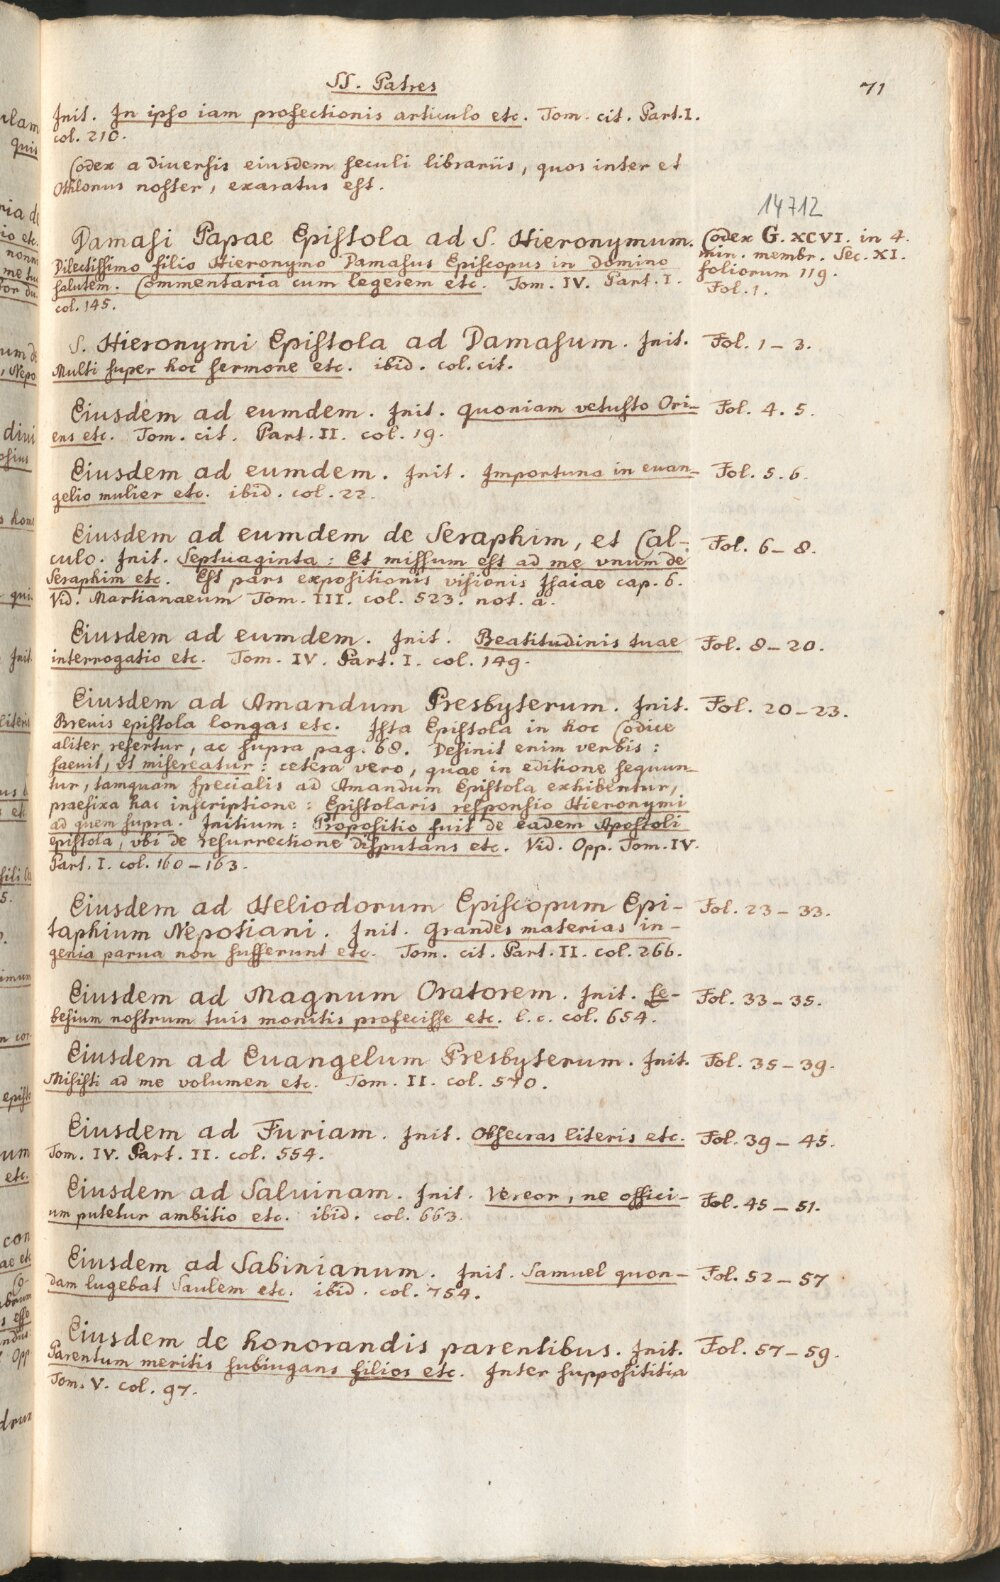 SS. Patres
71
Init. In ipso iam profectionis articulo etc. Tom. cit. Part. I.
col. 210.
Codex a diversis eiusdem seculi librariis, quos inter et
Othlonus noster, exaratus est.
14712
Damasi Papae Epistola ad S. Hieronymum.
Codex G. XCVI. in 4.
min. membr. Sec. XI.
foliorum 119.
Fol. 1.
Dilectissimo filio Hieronymo Damasus Episcopus in domino
salutem. Commentaria cum legerem etc. Tom. IV. Part. I.
col. 145.
S. Hieronymi Epistola ad Damasum. Init. Fol. 1–3.
Multi super hoc sermone etc. ibid. col. cit.
Eiusdem ad eumdem. Init. Quoniam vetusto Ori- Fol. 4. 5.
ens etc. Tom. cit. Part. II. col. 19.
Eiusdem ad eumdem. Init. Importuna in euan- Fol. 5. 6.
gelio mulier etc. ibid. col. 22.
Eiusdem ad eumdem de Seraphim, et Cal- Fol. 6–8.
culo. Init. Septuaginta: Et missum est ad me vnum de
Seraphim etc. Est pars expositionis visionis Isaiae cap. 6.
Vid. Martianaeum Tom. III. col. 523. not. a.
Eiusdem ad eumdem. Init. Beatitudinis tuae Fol. 8–20.
interrogatio etc. Tom. IV. Part. I. col. 149.
Eiusdem ad Amandum Presbyterum. Init. Fol. 20–23.
Breuis epistola longas etc. Ista Epistola in hoc Codice
aliter refertur, ac supra pag. 68. Definit enim verbis:
saeuit, vt misereatur: cetera vero, quae in editione sequun-
tur, tamquam specialis ad Amandum Epistola exhibentur,
praefixa hac inscriptione: Epistolaris responsio Hieronymi
ad quem supra. Initium: Propositio fuit de eadem Apostoli
epistola, vbi de resurrectione disputans etc. Vid. Opp. Tom. IV.
Part. I. col. 160–163.
Eiusdem ad Heliodorum Episcopum Epi- Fol. 23–33.
taphium Nepotiani. Init. Grandes materias in-
genia parua non sufferunt etc. Tom. cit. Part. II. col. 266.
Eiusdem ad Magnum Oratorem. Init. Se- Fol. 33–35.
besium nostrum tuis monitis profecisse etc. l. c. col. 654.
Eiusdem ad Euangelum Presbyterum. Init. Fol. 35–39.
Misisti ad me volumen etc. Tom. II. col. 570.
Eiusdem ad Furiam. Init. Obsecras literis etc. Fol. 39–45.
Tom. IV. Part. II. col. 554.
Eiusdem ad Saluinam. Init. Vereor, ne offici- Fol. 45–51.
um putetur ambitio etc. ibid. col. 663.
Eiusdem ad Sabinianum. Init. Samuel quon- Fol. 52–57
dam lugebat Saulem etc. ibid. col. 754.
Eiusdem de honorandis parentibus. Init. Fol. 57–59.
Parentum meritis subiugans filios etc. Inter supposititia
Tom. V. col. 97.